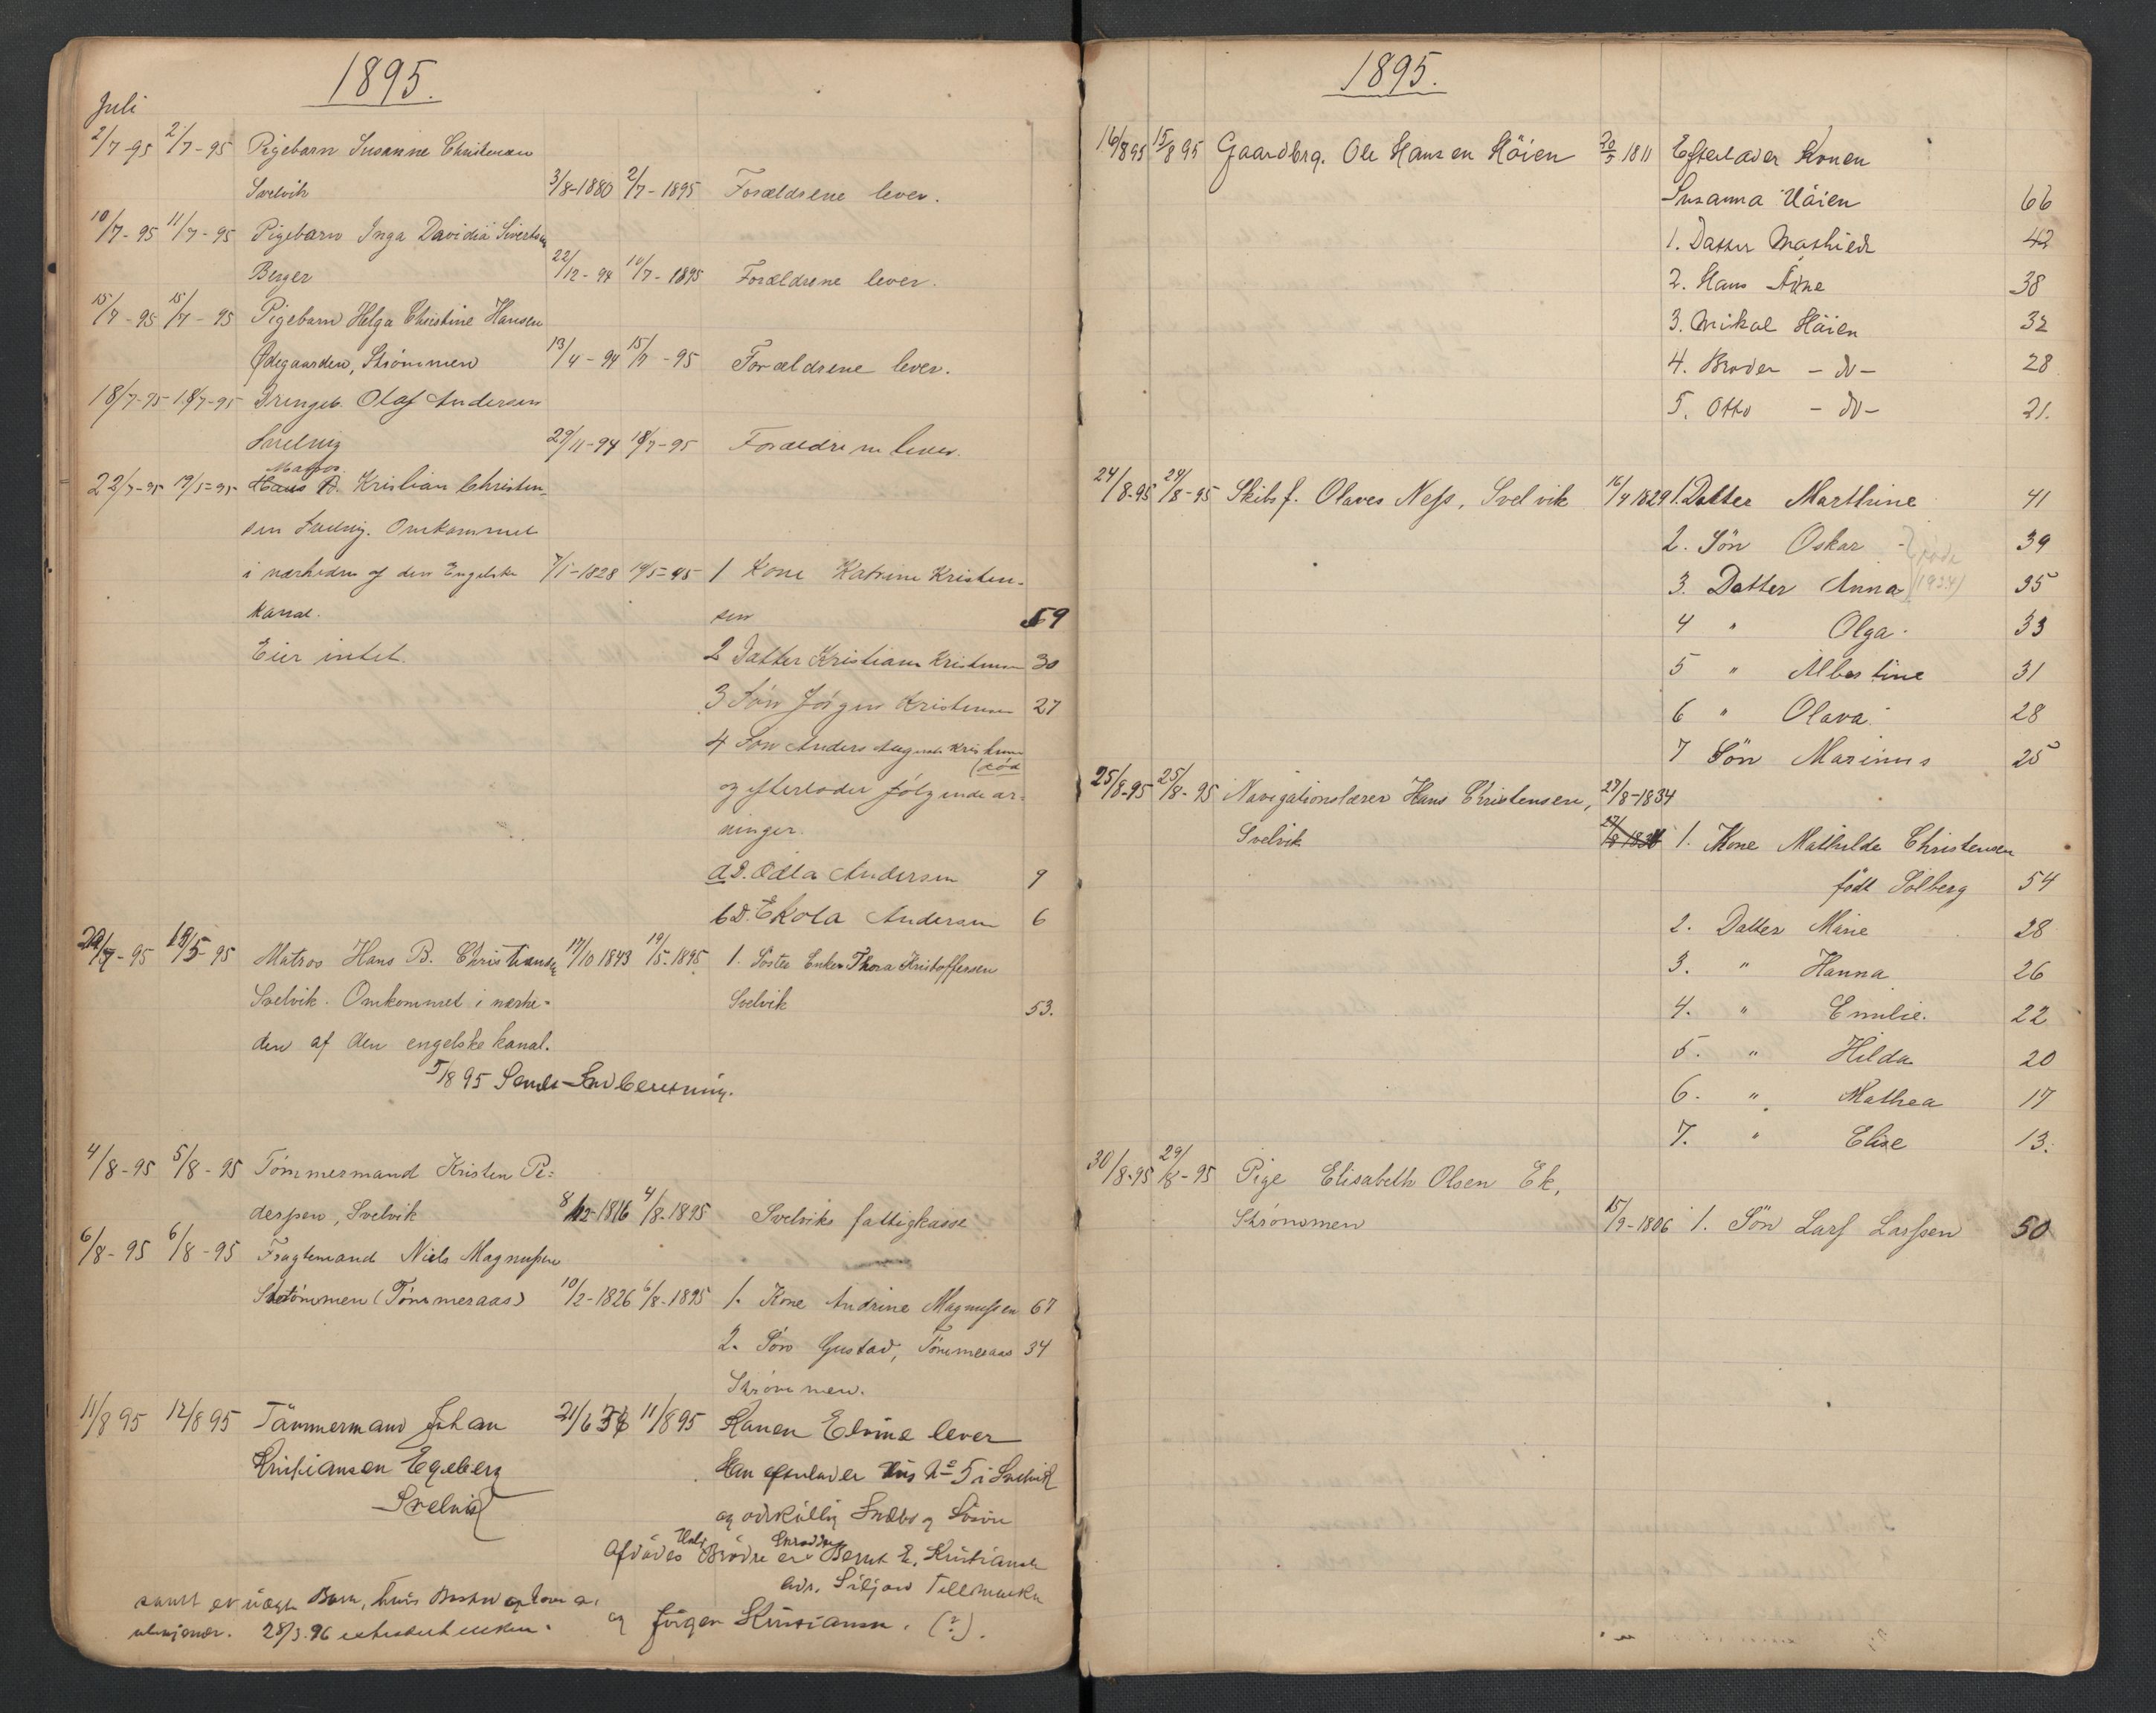 1895.
Juli
2/7-95 2/7-95 Pigebarn Susanne Christensen
Svelvik 3/8-1880 2/7-1895 Forældrene lever.
10/7-95 11/7-95 Pigebarn Inga Davidia Sivertsen
Berger 22/12-94 10/7-1895 Forældrene lever.
15/7-95 15/7-95 Pigebarn Helga Christine Hansen
Ødegaarden, Strömmen 13/4-94 15/7-95 Forældrene lever.
18/7-95 18/7-95 Drengeb. Olaf Andersen
Svelvig 29/11-94 18/7-95 Forældrene lever.
Matros
22/7-95 19/5-95 Hans B. Kristian Christen-
sen Svelvig. Omkommet
i nærheden af den Engelske 7/1-1828 19/5-95 1 Kone Katrine Kristen-
kanal. sen 59
Eier intet. 2 Datter Kristiane Kristensen 30
3 Sön Jörgen Kristensen 27
4 Sön Anders August Kristensen
(död
og efterlader fölgende ar-
vinger.
a D. Odla Andersen 9
b D. Ekola Andersen 6
22/7-95 19/5-95 Matros Hans B. Christiansen 17/10 1843 19/5-1895 1. Söster Enken Thora Kristoffersen
Svelvik. Omkommet i nærhe- Svelvik 53.
den af den engelske kanal.
5/8 95 Sendt Indberetning.
4/8-95 5/8-95 Tömmermand Kristen Pe-
dersen, Svelvik 8/12-1816 4/8-1895 Svelviks fattigkasse
6/8-95 6/8-95 Fragtemand Niels Magnussen
Strömmen (Tömmeraas) 10/2-1826 6/8-1895 1. Kone Andrine Magnussen 67
2. Sön Gustav, Tömmeraas 34
Strömmen.
11/8 95 12/8 95 Tömmermand Johan 21/6 36 11/8 95 Konen Elvine lever
Kristiansen Egeberg Han efterlader Hus No 5 i Svelvik
Svelvik og adskillig Indbo og Lösöre
Afdödes Brödre er Bernt E. Kristiansen
adr. Siljan Tellemarken
samt et uægte Barn, hvis
og Jörgen Kristiansen. (?).
28/3.96
1895.
16/8 95 15/8 95 Gaardbrg. Ole Hansen Höien 20/5 1811 Efterlader Konen
Susanna Höien 66
1. Datter Mathilde 42
2. Hans Arne 38
3. Mikal Höien 32
4. Broder - do - 28
5. Otto - do - 21.
24/8-95 24/8-95 Skibsf. Olaves Ness, Svelvik 16/4 1829 1. Datter Marthine 41
2. Sön Oskar 39
3. Datter Anna (1934) 35
4 " Olga. 33
5 " Albertine 31
6 " Olava 28
7 Sön Marinus 25
25/8-95 25/8-95 Navigationslærer Hans Christensen, 27/8-1834
Svelvik 27/8 1834 1. Kone Mathilde Christensen
född Solberg 54
2. Datter Marie 28
3. " Hanna 26
4. " Emilie. 22
5. " Hilda 20
6. " Mathea 17
7. " Elise 13.
30/8-95 29/8-95 Pige Elisabeth Olsen Ek,
Strömmen 15/9-1806 1. Sön Lars Larssen 50